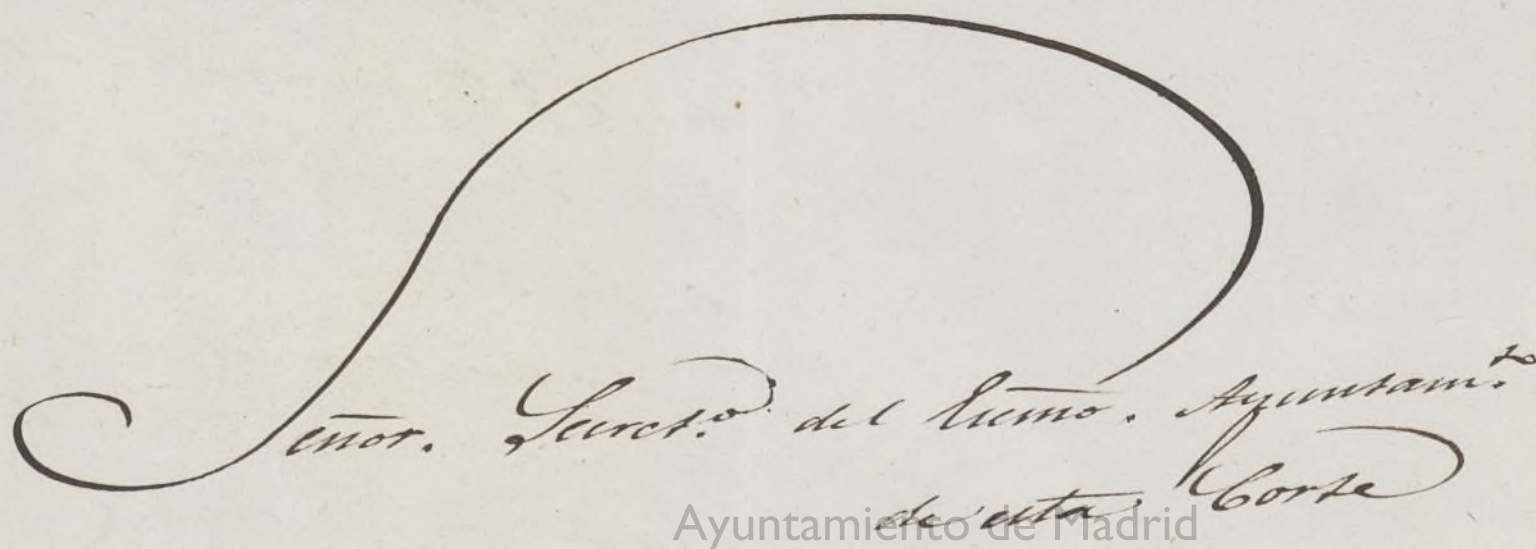 Señor. Secret.º del Exmo. Ayuntam.to
de esta Corte
Ayuntamiento de Madrid